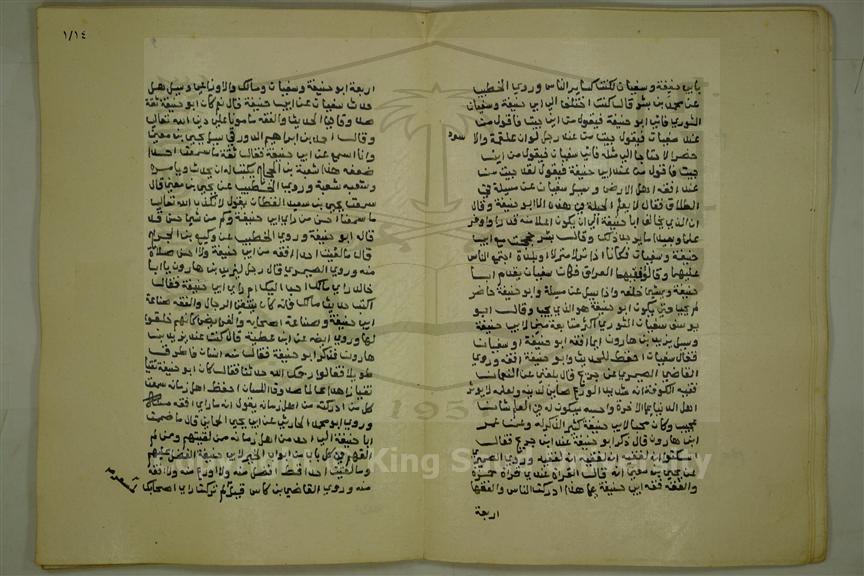 يابي حنيفة وسفيان لكنت كسائر الناس وروي الخطيب
عن محمد بن بشر قال كنت اختلف الى ابي حنيفة وسفيان
الثوري فاتي ابو حنيفة فيقول من اين جيت فاقول من
عند سفيان فيقول جيت من عند رجل لوان علقمة والاسود
حضرا لاحتاجا الى مثله فاتي سفيان فيقول من اين
جيت فاقول من عند ابي حنيفة فيقول لقد جيت من
عند افقه اهل الارض وسيل سفيان عن مسيلة في
الطلاق فقال لا يعلم الحيلة في هذه الا ابو حنيفة وقال
ان الذي يخالف ابا حنيفة الى ان يكون اعلا منه قدرا واوفر
علما وبعيد ما يوجد ذلك وقال بشر حججت مع ابي
حنيفة وسفيان فكانا اذا نزلا منزلا او بلدة اجتمع الناس
عليهما وقالوا فقيها العراق فكان سفيان يقدم ابا
حنيفة ويمشي خلفه واذا سيل عن مسيلة وابو حنيفة حاضر
لم يجب حتى يكون ابو حنيفة هو الذي يجيب وقال ابو
يوسف سفيان الثوري اكثر متابعة مني لابي حنيفة
وسيل يزيد بن هارون ايما افقه ابو حنيفة او سفيان
فقال سفيان احفظ للحديث وابو حنيفة افقه وروي
القاضي الصيمري عن جريج قال بلغني عن النعمان
فقيه الكوفة انه شديد الورع صاين لدينه ولعلمه لا يوثر
اهل الدنيا على الاخرة واحسبه سيكون له في العلم شان
عجيب وكان محبا لابي حنيفة كثير الذكر له وعن عمر
ابن هارون قال ذكر ابو حنيفة عند ابن جريج فقال
اسكتوا انه لفقيه انه لفقيه انه لفقيه وروي الصيمري
عن يحيى بن معين انه قال القراة عندي قراة حمزة
والفقه فقه ابي حنيفة على هذا ادركت الناس والفقها
اربعة
١/١٤
اربعة ابو حنيفة وسفيان ومالك والاوزاعي وسيل هل
حدث سفيان عن ابي حنيفة قال نعم كان ابو حنيفة ثقة
صدوقا في الحديث والفقه مامونا على دين الله تعالى
وقال احمد بن ابراهيم الدورقي سيل يحيى بن معين
وانا اسمع عن ابي حنيفة فقال ثقة ما سمعت احدا
ضعفه هذا شعبة بن الحجاج يكتب له ان يحدث ويامره
وشعبة شعبة وروي الخطيب عن يحيى بن معين قال
سمعت يحيى بن سعيد القطان يقول لا نكذب الله تعالى
ما سمعنا احسن من راي ابي حنيفة وكم من شي حسن قد
قاله ابو حنيفة وروي الخطيب عن وكيع بن الجراح
قال ما لقيت احدا افقه من ابي حنيفة ولا احسن صلاة
منه وروي الصيمري قال رجل ليزيد بن هارون يا ابا
خالد راي مالك احب اليك ام راي ابي حنيفة فقال
اكتب حديث مالك فانه كان ينتقي الرجال والفقه صناعة
ابي حنيفة وصناعة اصحابه والفرايض كانهم خلقوا
لها وروي ايضه عن ابن عطية قال كنت عند يزيد بن
هارون فذكر ابو حنيفة فقال منه انسان فاطرق
طويلا فقالوا رحمك الله حدثنا فقال كان ابو حنيفة تقيا
نقيا زاهدا عالما صدوق اللسان احفظ اهل زمانه سمعت
كل من ادركته من اهل زمانه يقول انه ما راي افقه منه
وروي ابو محمد الحارثي عن ابي يحيى الحماني قال ما ضممت
ابا حنيفة الى احد من اهل زمانه من لقيتهم وممن لم
القهم في كل باب من ابواب الخير لابي حنيفة الفضل عليهم
وما لقيت احدا قط افضل منه ولا اورع منه ولا افقه
منه وروي القاضي بن كاس قيل لم تركت راي اصحابك